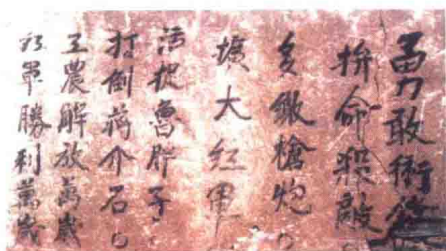 勇敢衝鋒
拚命殺敵
多繳槍炮
擴大紅軍
活捉魯胖子
打倒蔣介石
工農解放萬歲
紅軍勝利萬歲